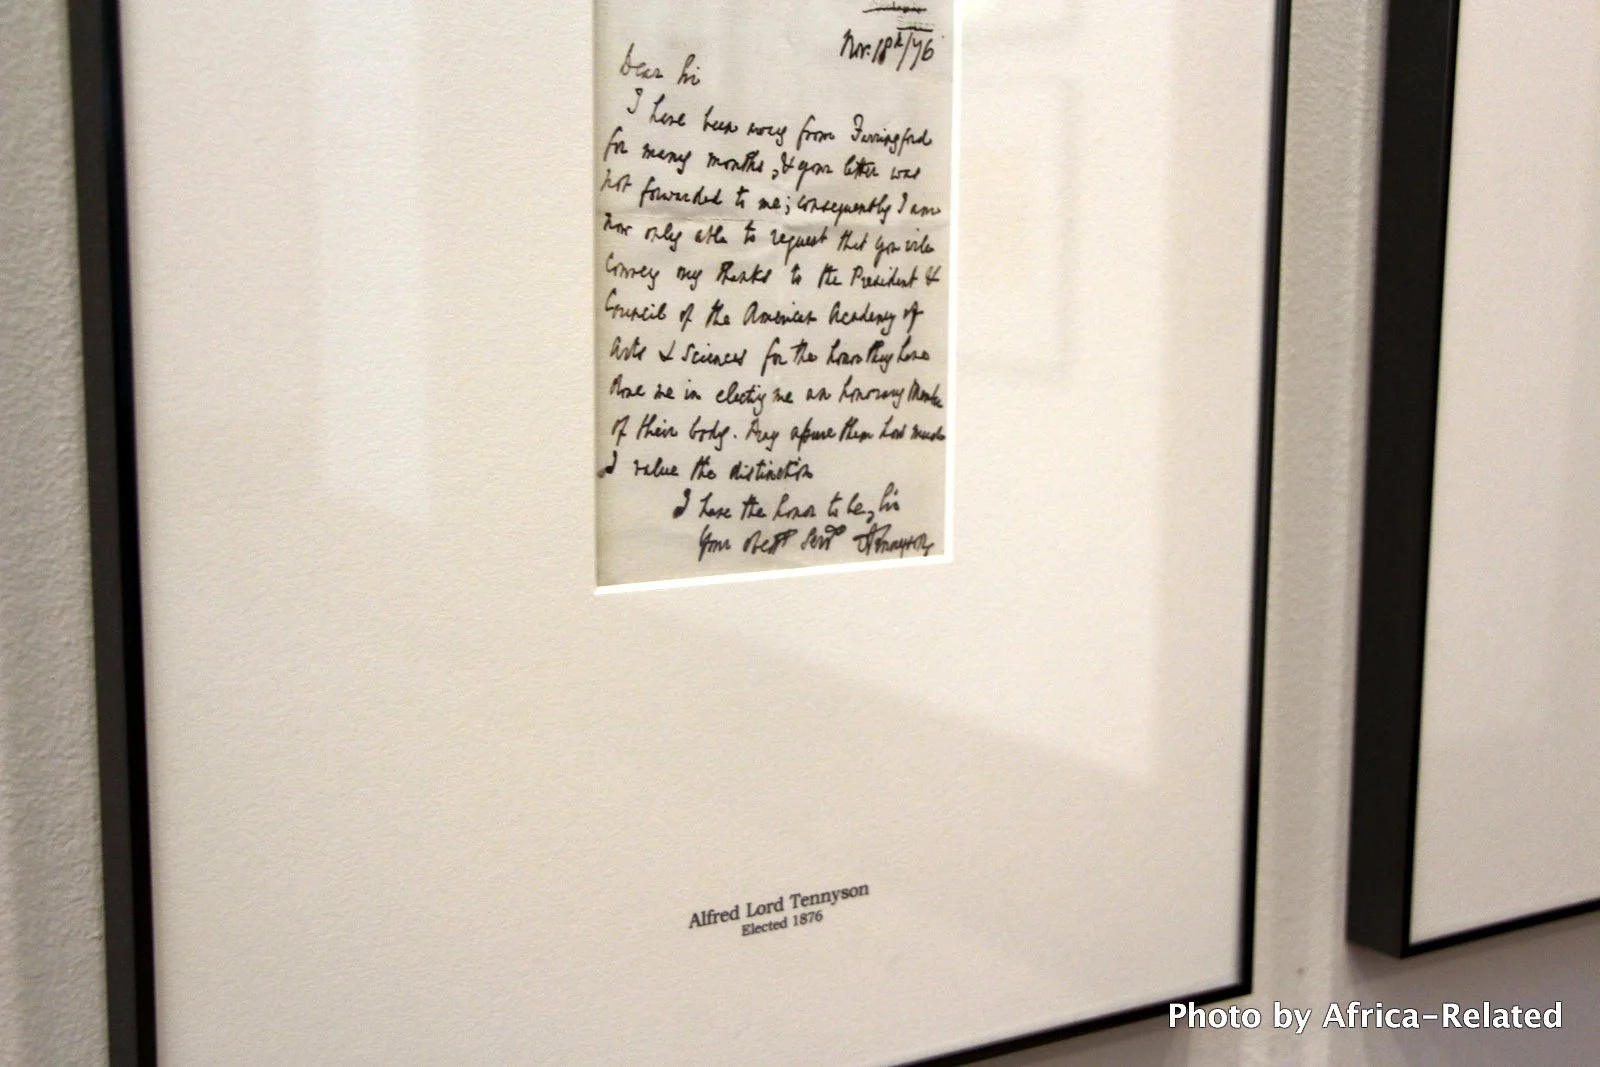 Nov. 18th/76
Dear Sir
I have been away from Farringford
for many months, & your letter was
not forwarded to me; consequently I am
now only able to request that you will
convey my thanks to the President &
Council of the American Academy of
Arts & Sciences for the honor they have
done me in electing me an honorary Member
of their body. Pray assure them how much
I value the distinction
I have the honor to be, Sir
Your obedt Servt ATennyson
Alfred Lord Tennyson
Elected 1876
Photo by Africa-Related